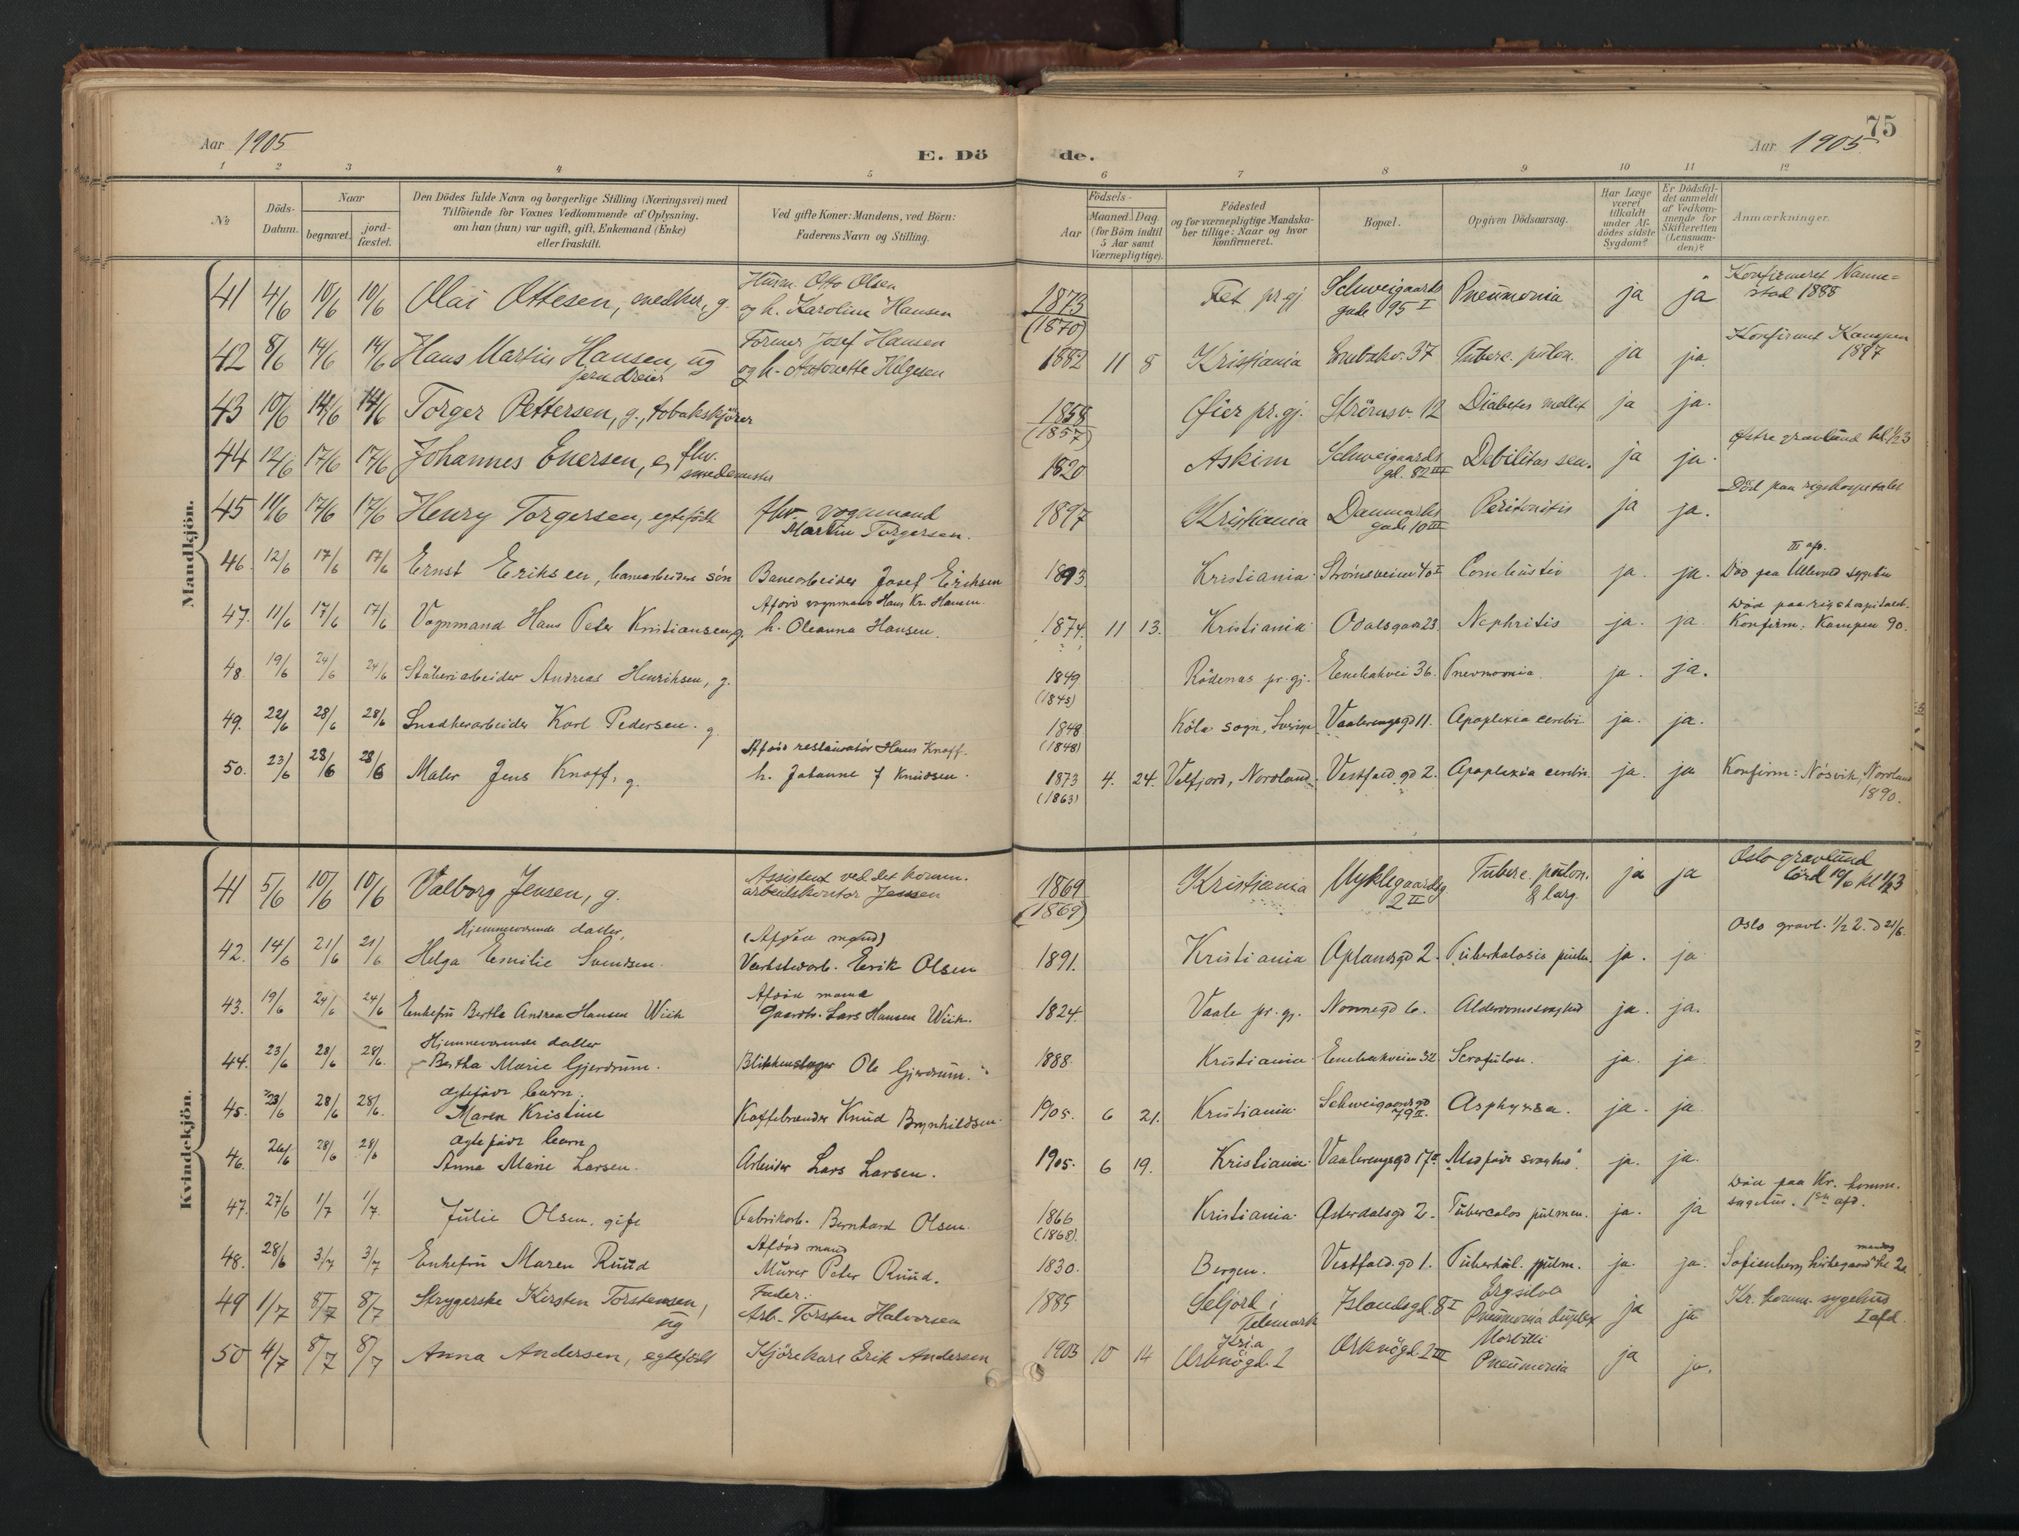 75
Aar 1905
E. Dö
de.
Aar 1905.
1 2 3 4 5 6 7 8 9 10 11 12
№
Döds-Datum.
Naar
begravet.
jord-fæstet.
Den Dödes fulde Navn og borgerlige Stilling (Næringsvei) med
Tilföiende for Voxnes Vedkommende af Oplysning.
om han (hun) var ugift, gift, Enkemand (Enke)
eller fraskilt.
Ved gifte Koner: Mandens, ved Börn:
Faderens Navn og Stilling.
Födsels-
Aar
Maaned. Dag.
(for Börn indtil
5 Aar samt
Værnepligtige).
Födested
og for værnepligtige Mandska-
ber tillige: Naar og hvor
konfirmeret.
Bopæl.
Opgiven Dödsaarsag.
Har Læge
været
tilkaldt
under Af-
dödes sidste
Sygdom?
Er Dödsfal-
det anmeldt
af Vedkom-
mende for
Skifteretten
(Lensman-
den)?
Anmærkninger.
Mandkjön.
41 4/6 10/6 10/6 Olai Ottesen, snedker, g. Husm. Otto Olsen
og h. Karoline Hansen 1873 (1870) Fet pr.gj Schweigaards
gade 95 I Pneumonia ja ja Konfirmeret Nanne=
stad 1888
42 8/6 14/6 14/6 Hans Martin Hansen, ug
jerndreier Former Josef Hansen
og h. Antonette Helgesen 1882 11 8 Kristiania Enebakv. 37 Tuberc. pulon. ja ja. Konfirmert Kampen
1897
43 10/6 14/6 14/6 Torger Pettersen, g., tobakskjörer 1858 (1857) Öier pr.gj. Strömsv. 12 Diabetes mellit ja ja.
44 12/6 17/6 17/6 Johannes Enersen, e, fhv.
smedemester 1820 Askim Schweigaards
gd. 82 III Debilitas sen. ja ja. Østre gravlund kl. 1/2 3
45 11/6 17/6 17/6 Henry Torgersen, egtefödt fhv. vognmand
Martin Torgersen. 1897 Kristiania Danmarks
gade 10 III Peritonitis ja ja. Död paa rigshospitalet
46. 12/6 17/6 17/6 Ernst Eriksen, banearbeiders sön Banearbeider Josef Eriksen 1893. Kristiania. Strømsveien 40 I Combustio ja. ja. Död paa Ullevaal sygehus III afd.
47. 11/6 17/6 17/6 Vognmand Hans Peter Kristiansen, g. Afdöd vognmand Hans Kr. Hansen.
h. Oleanna Hansen. 1874. 11 13. Kristiania. Odalsgaa 23. Nephritis ja. ja. Död paa rigshospitalet.
Konfirm: Kampen 90.
48. 19/6 24/6 24/6 Andreas Henriksen, g. 1849 (1845) Rödenæs pr. gj. Enebakvei 36. Pnevmonia. ja. ja.
49. 22/6 28/6 28/6 Snedkerarbeider Karl Pedersen. g. 1848 (1848) Köla sogn, Sverige Vaalerengsgd 11. Apoplexia cerebri ja. ja.
50. 23/6 28/6 28/6 Maler Jens Knoff, g. Afdöd restauratör Hans Knoff.
h. Johanne f Knudsen. 1873 (1863) 4. 24. Velfjord, Nordland. Vestfold gd 2. Apoplexia cerebri ja. ja Konfirm: Nösvik, Nordland
1890.
Kvindekjön.
41 5/6 10/6 10/6 Valborg Jensen, g. Assistent ved det komm.
arbeidskontor Jensen 1869 (1869) Kristiania Myklegaardsg.
2 II Tuberc. pulon.
& larg. ja ja Oslo gravlund
lörd 10/6 kl 1/2 3
42. 14/6 21/6 21/6 Hjemmeværende datter,
Helga Emilie Svendsen. (Afdöd mand)
Verkstedarb. Erik Olsen 1891. Kristiania Aplandsgd 2. Tuberkulosis pulm. ja. ja Oslo gravl. 1/2 2. d 21/6.
43. 19/6 24/6 24/6 Enkefru Berthe Andrea Hansen Wiik Afdöd mand
Gaardb. Lars Hansen Wiik. 1824. Vaale pr. gj. Nonnegd 6. Alderdomssvaghed ja. ja.
44. 23/6 28/6 28/6. Hjemmeværende datter
Bertha Marie Gjerdrum. Blikkenslager Ole Gjerdrum. 1888. Kristiania. Enebakveien 32. Scrofulose. ja. ja.
45. 23/6 28/6 28/6. ægtefödt barn.
Maren Kristine Kaffebrænder Knud Brynhildsen. 1905. 6 21. Kristiania. Schweigaardsgd
79 II. Asphyxia. ja. ja.
46. 26/6 28/6 28/6 ægtefödt barn
Anna Marie Larsen. Arbeider Lars Larsen. 1905. 6 19. Kristiania. Vaalerengsgd 17 II „Medfödt svaghed“. ja. ja.
47. 27/6 1/7 1/7. Julie Olsen, gift Fabrikarb. Bernhard Olsen. 1866 (1868). Kristiania. Østerdalsgd 2. Tuberculos pulmon. ja. ja Död paa Kr. komm.
sygehus. 1ste afd.
48. 28/6 3/7 3/7 Enkefru Maren Ruud Afdöd mand
Murer Peter Ruud. 1830. Bergen. Vestfold gd 1. Tuberkul. pulm. ja. ja. Sofienberg kirkegaard kl 2. mandag
49 1/7 8/7 8/7 Strygerske Kirsten Torstensen,
ug Fader:
Arb. Torsten Halvorsen 1885 Seljord i
Telemark Islandsgd. 8 I
Pneumonia duplex ja ja Kr. komm. sygehus
I afd.
50 4/7 8/7 8/7 Anna Andersen, egtefödt Kjörekarl Erik Andersen 1903 10 14 Kr.ia
Orknögd. 2 Orknögd. 2 III Morbilli
Pneumonia ja ja.